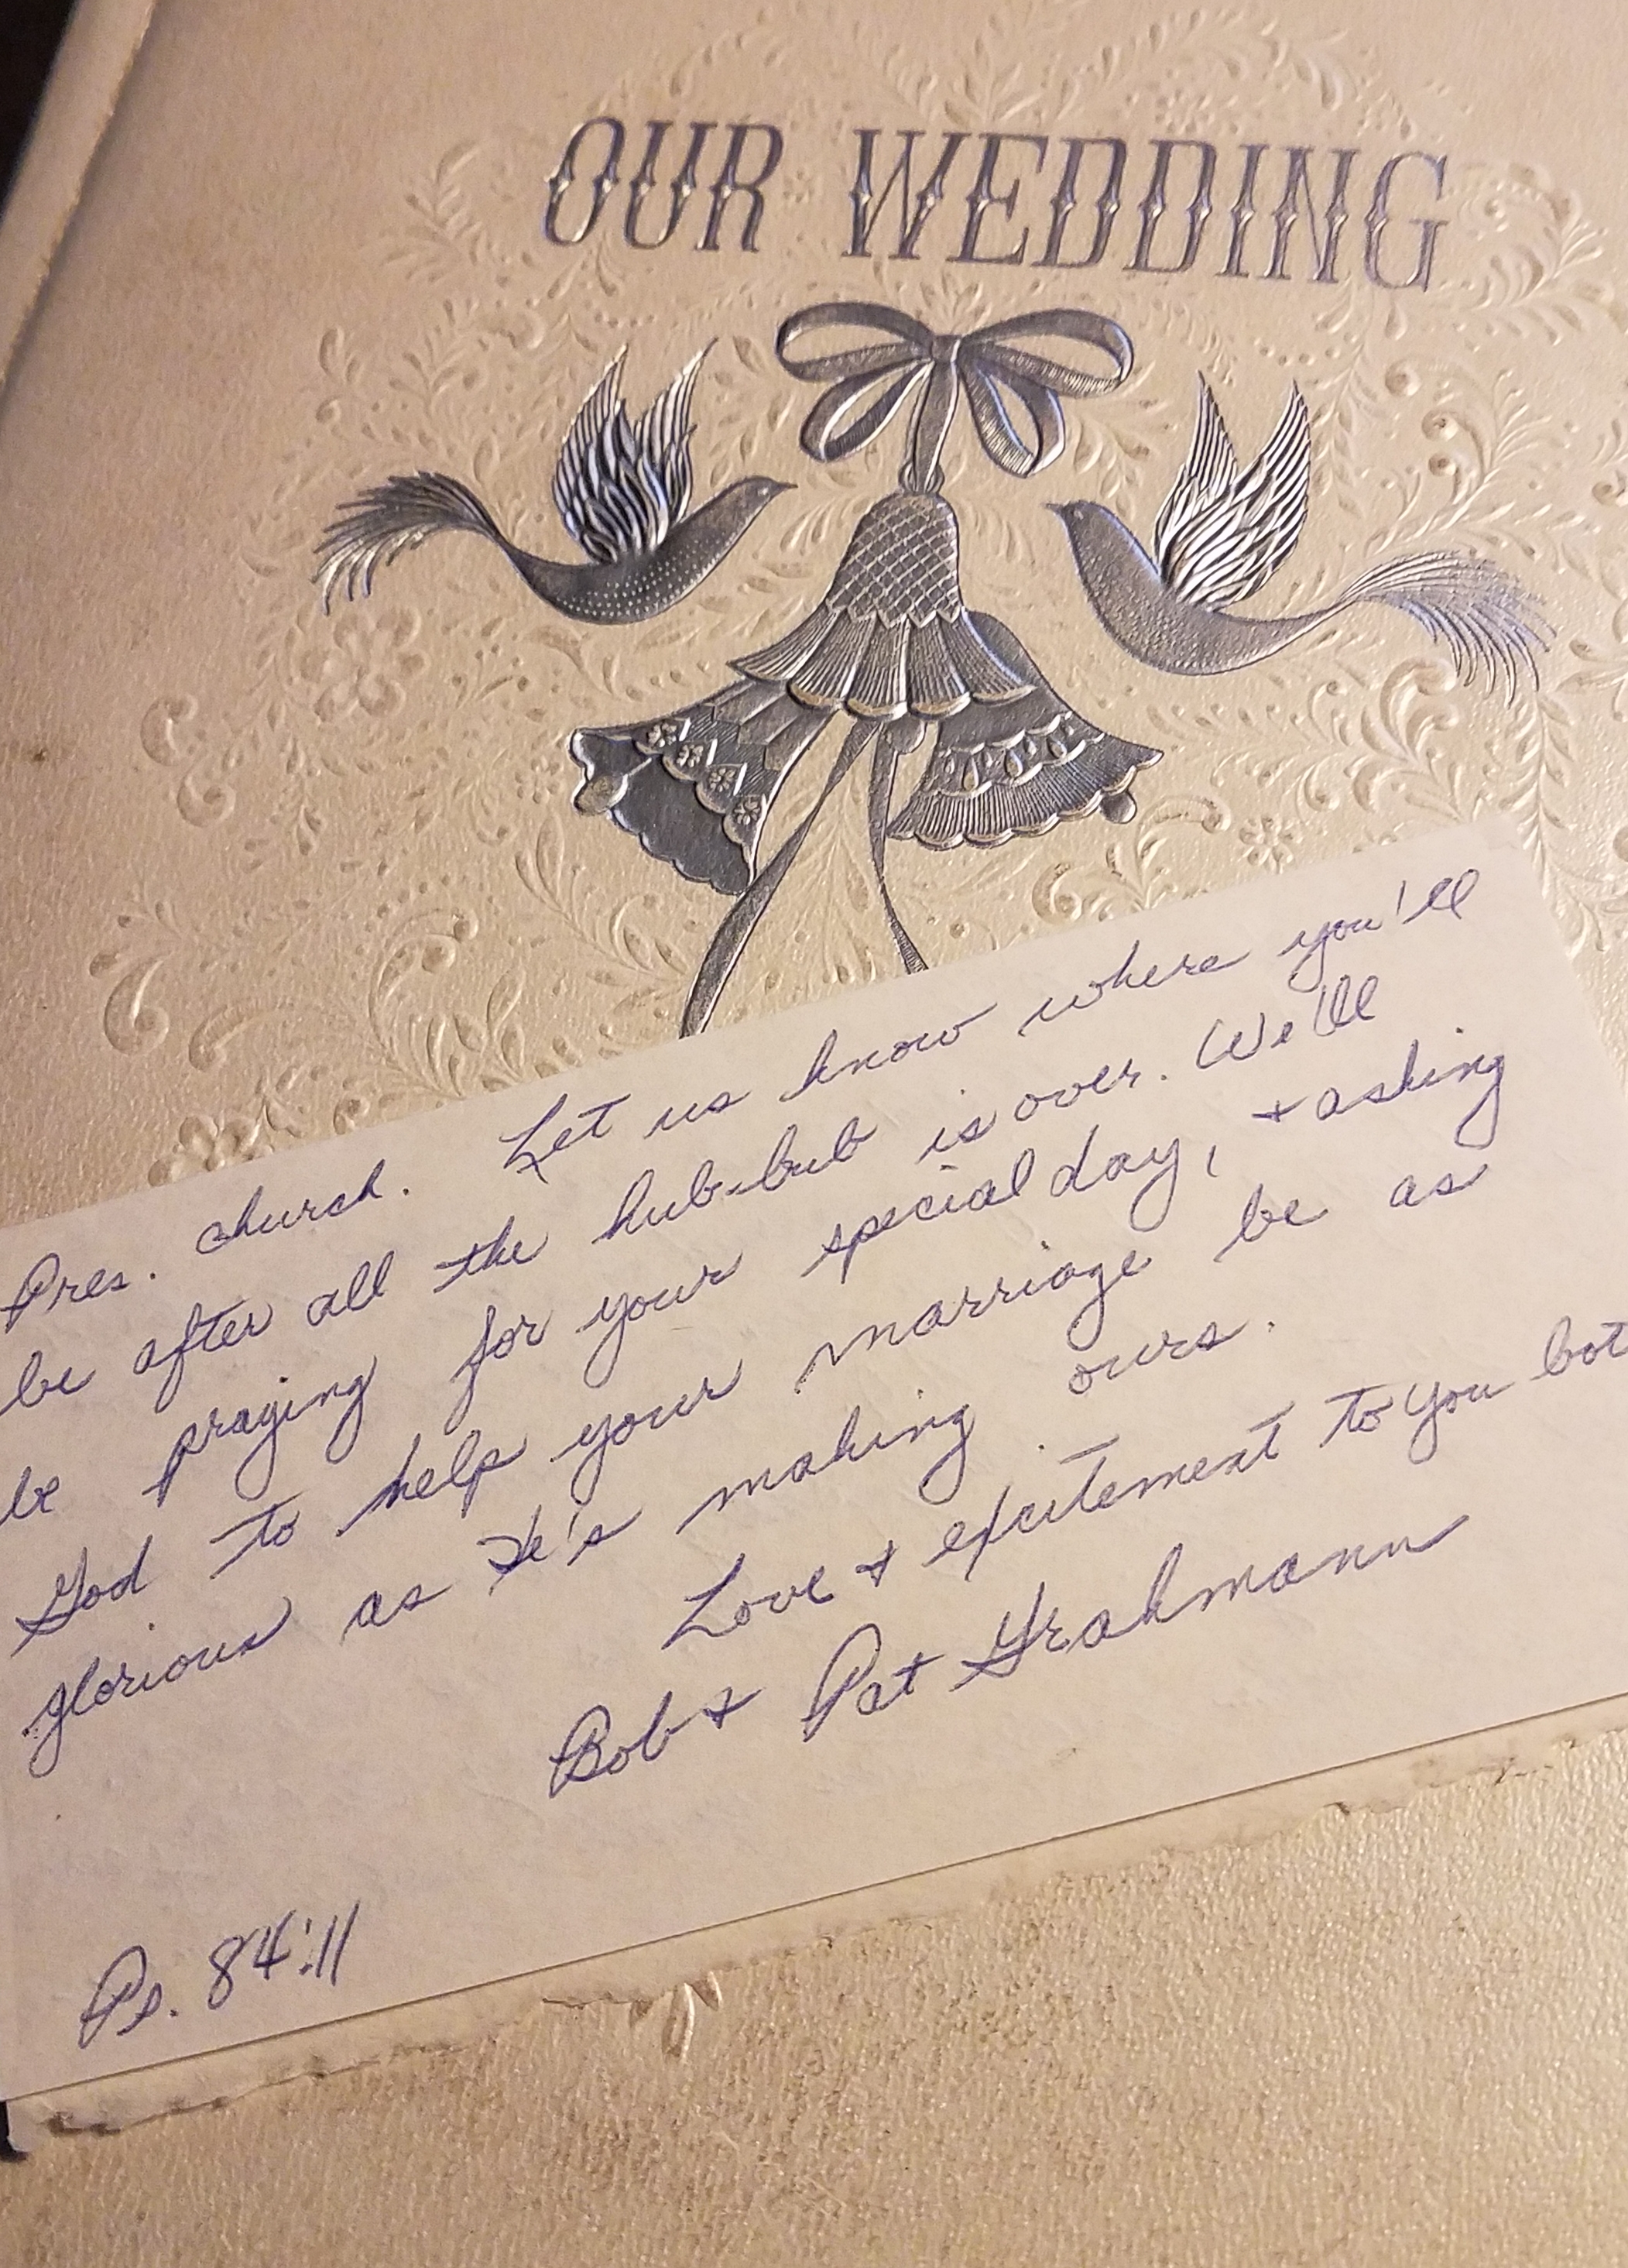 OUR WEDDING
Pres. church. Let us know where you'll
be after all the hub-bub is over. We'll
be praying for your special day, + asking
God to help your marriage be as
glorious as He's making ours.
Love & excitement to you bot
Bob & Pat Grahmann
Ps. 84:11